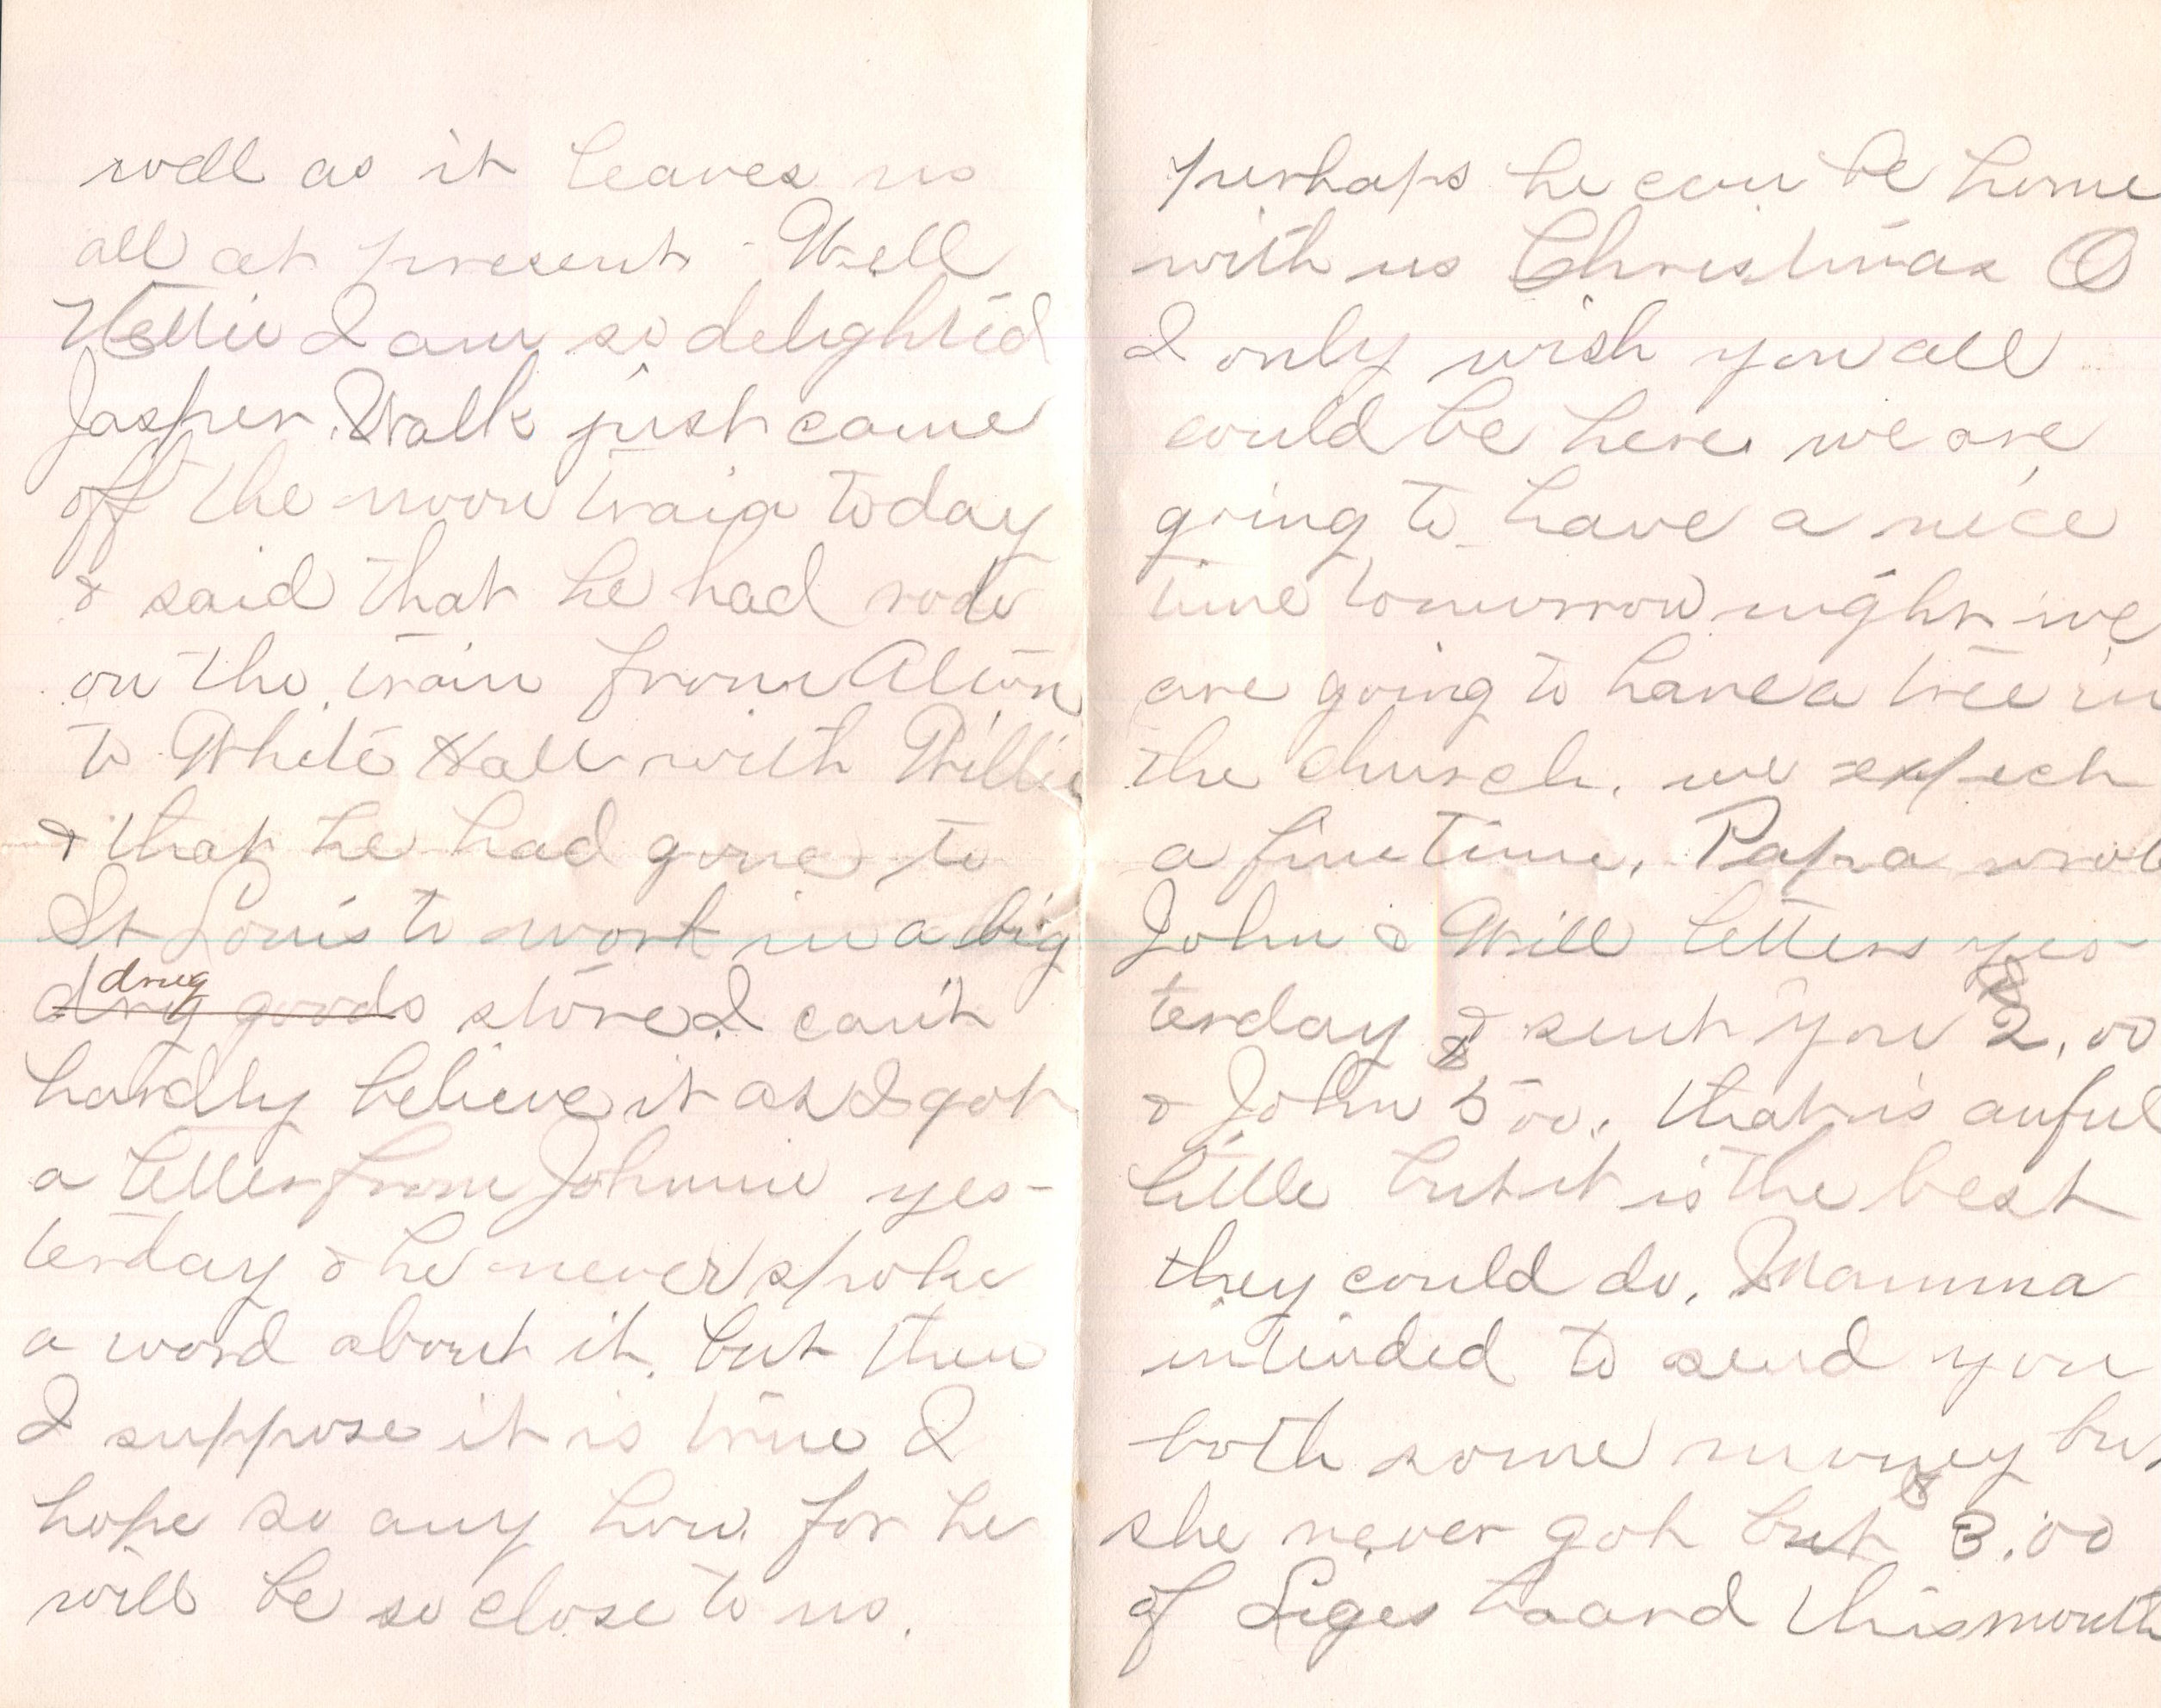 well as it leaves us
all at present - Well
Nettie I am so delighted
Jasper Stalk just came
off the noon train today
& said that he had rode
on the train from Alton
to White Hall with Willie
& that he had gone to
St Louis to work in a big
drug
dry goods store I can't
hardly believe it as I got
a letter from Johnnie yes-
terday & he never spoke
a word about it. but then
I suppose it is true I
hope so any how for he
will be so close to us.
perhaps he can be home
with us Christmas O
I only wish you all
could be here we are
going to have a nice
time tomorrow night we
are going to have a tree in
the church. we expect
a fine time. Papa wrote
John & Will letters yes-
terday & sent you $2.00
& John $5.00. that is awful
little but it is the best
they could do. Mamma
intended to send you
both some money but
she never got but $3.00
of Liges board this month